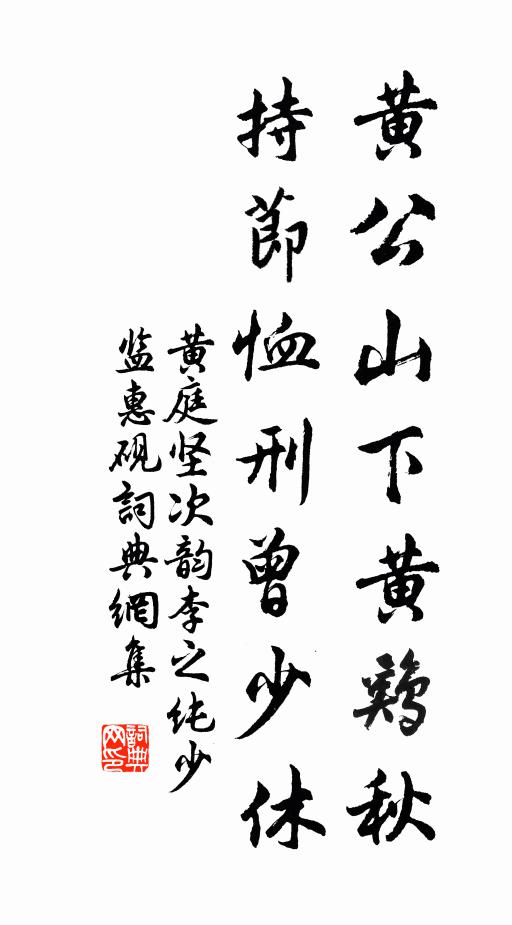 黄公山下黄鷄秋
持節恤刑曾少休
黄庭坚次韵李之纯少
监惠砚詞典網集
詞典网印